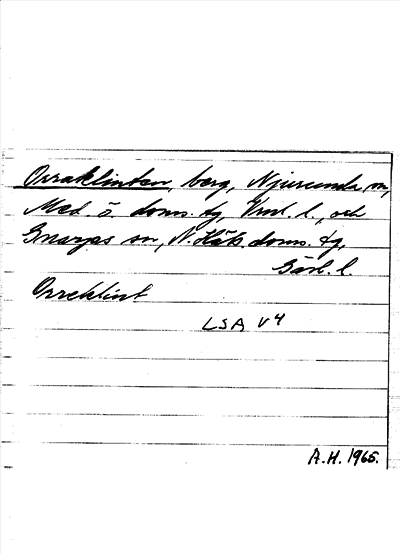 Orraklinten, berg, Njurunda sn,
Med. ö. doms. tg, Vnrl. l., och
Gnarps sn, N. Häls. doms. tg,
Gävl. l.
Orreklint
LSA V4
A.H. 1965.